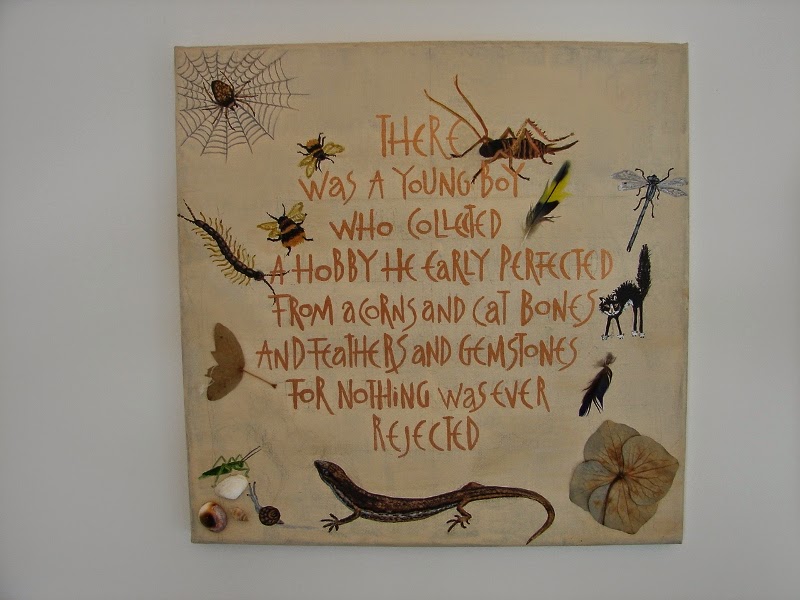 THERE
WAS A YOUNG BOY
WHO COLLECTED
A HOBBY HE EARLY PERFECTED
FROM ACORNS AND CAT BONES
AND FEATHERS AND GEMSTONES
FOR NOTHING WAS EVER
REJECTED